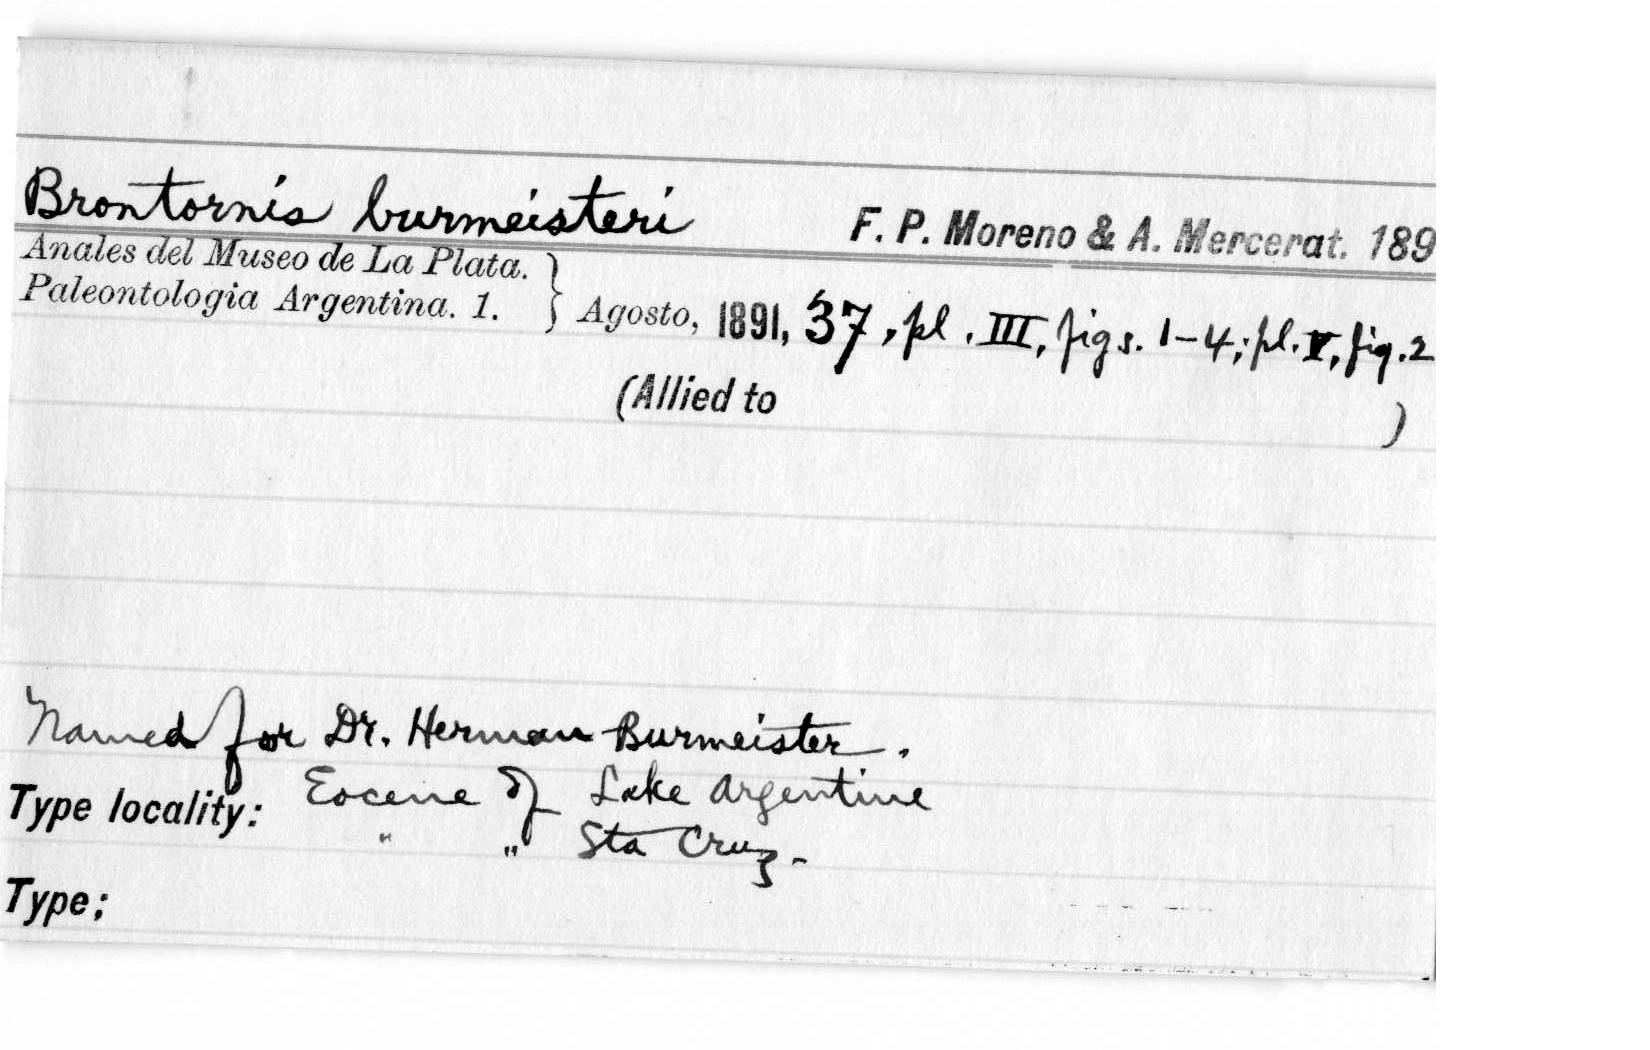 Brontornis burmeisteri F. P. Moreno & A. Mercerat. 189
Anales del Museo de La Plata.
Paleontologia Argentina. 1. } Agosto, 1891, 37, pl. III, figs. 1-4; pl. V, fig. 2
(Allied to )
Named for Dr. Herman Burmeister.
Type locality: Eocene of Lake Argentine
" " Sta Cruz-
Type;